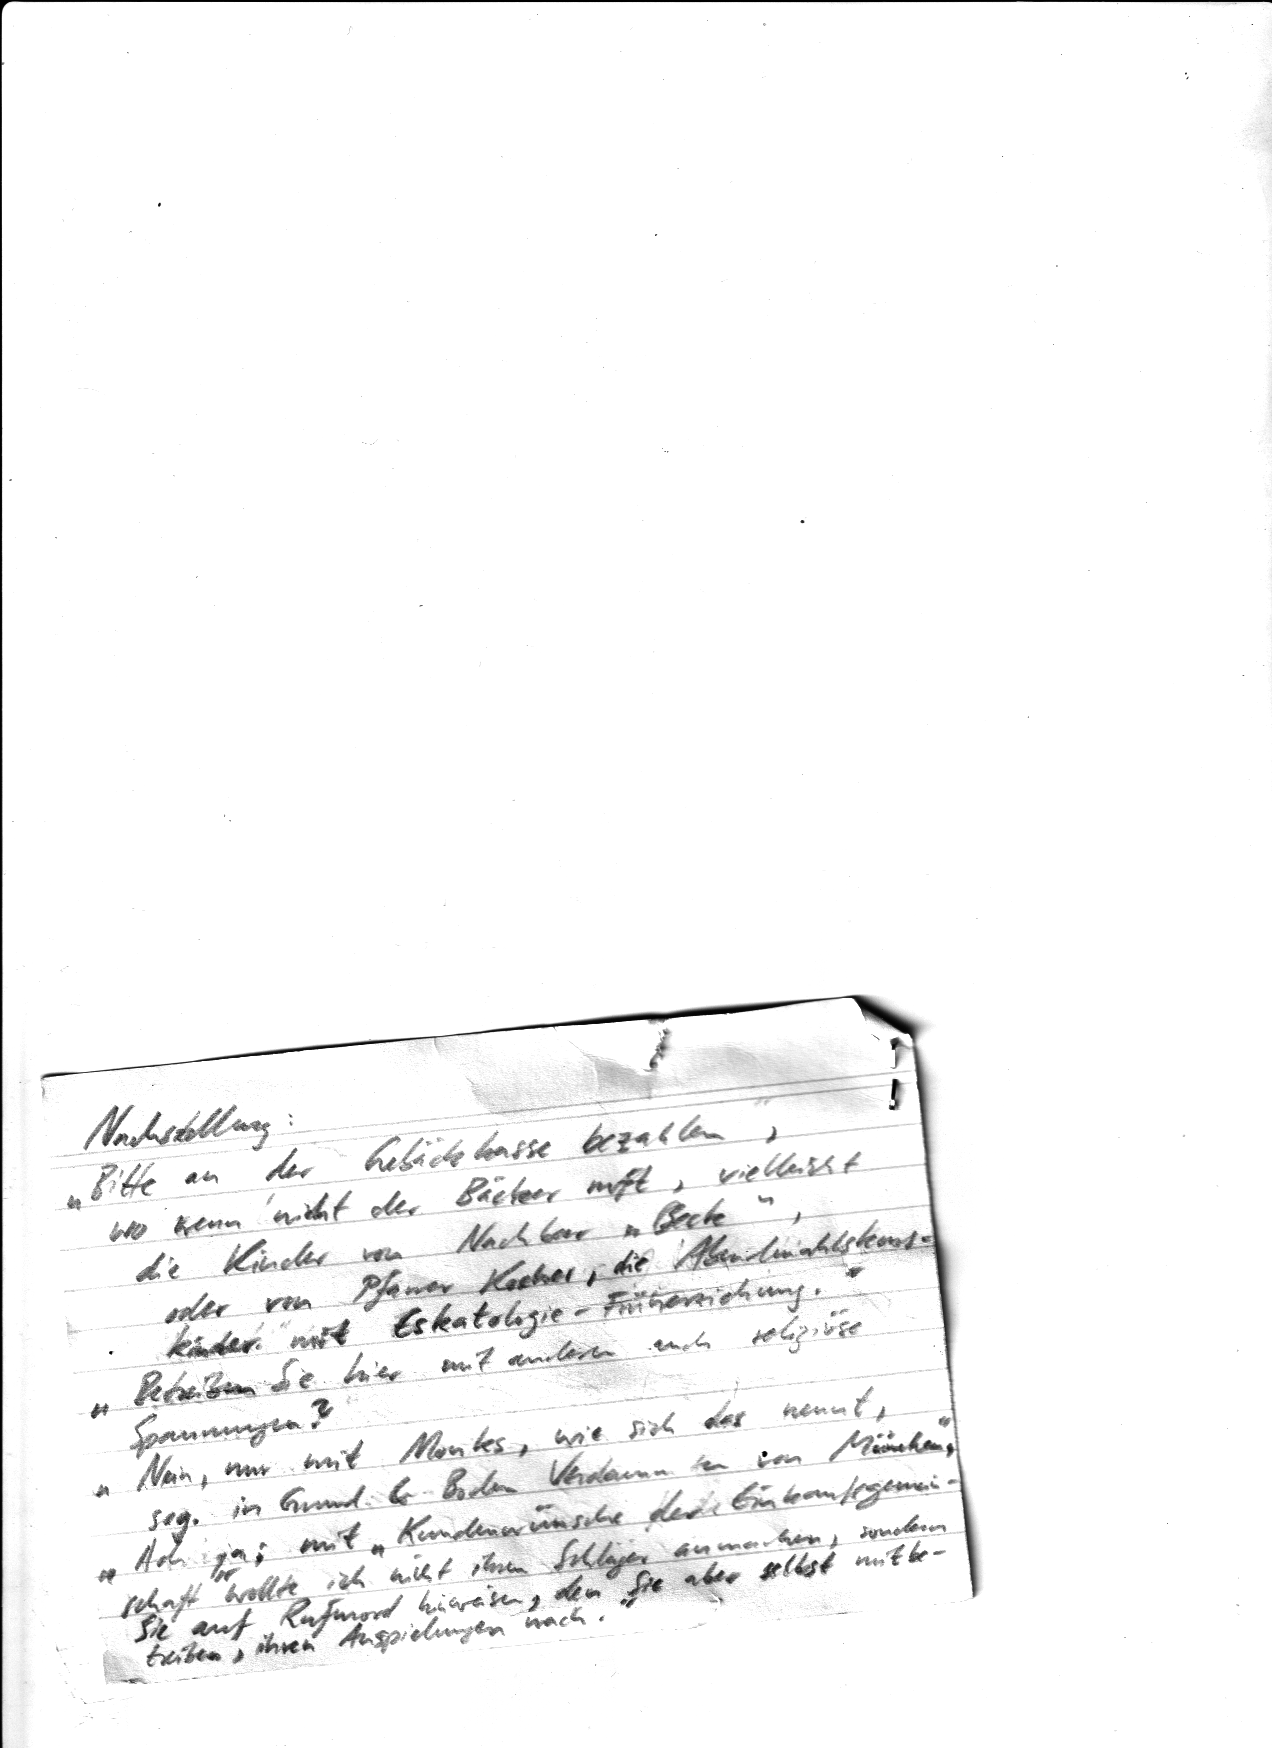 Nachstellung:
„Bitte an der Gebäckkasse bezahlen",
wo wenn nicht der Bäcker ruft, vielleicht
die Kinder von Nachbar „Becke",
oder von Pfarrer Kocher, die Abendmahlskurs-
kinder mit Eskatologie-Früherziehung."
„Betreiben Sie hier mit anderen auch religiöse
Spannungen?
„Nein, nur mit Monites, wie sich das nennt,
sog. in Grund & Boden Verdammten von München",
„Ach ja; mit „Kundenwünsche der Einkaufsgemein-
schaft" wollte ich nicht ihren Schläger anmachen, sondern
Sie auf Rufmord hinweisen, den Sie aber selbst mitbe-
treiben, ihren Anspielungen nach."